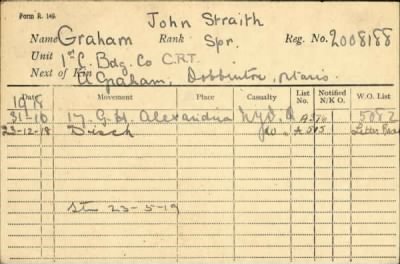 Form R. 149.
John Straith
Name Graham Rank Spr. Reg. No. 2008188
Unit 1st C. Bdg. Co C.R.T.
Next of Kin A Graham, Dobbinton, Ontario.
Date Movement Place Casualty List No. Notified N/K O. W.O. List
1918
31-10 17 G.H. Alexandria NYD. A376 5082
23-12-18 Disch do A505
23-5-19